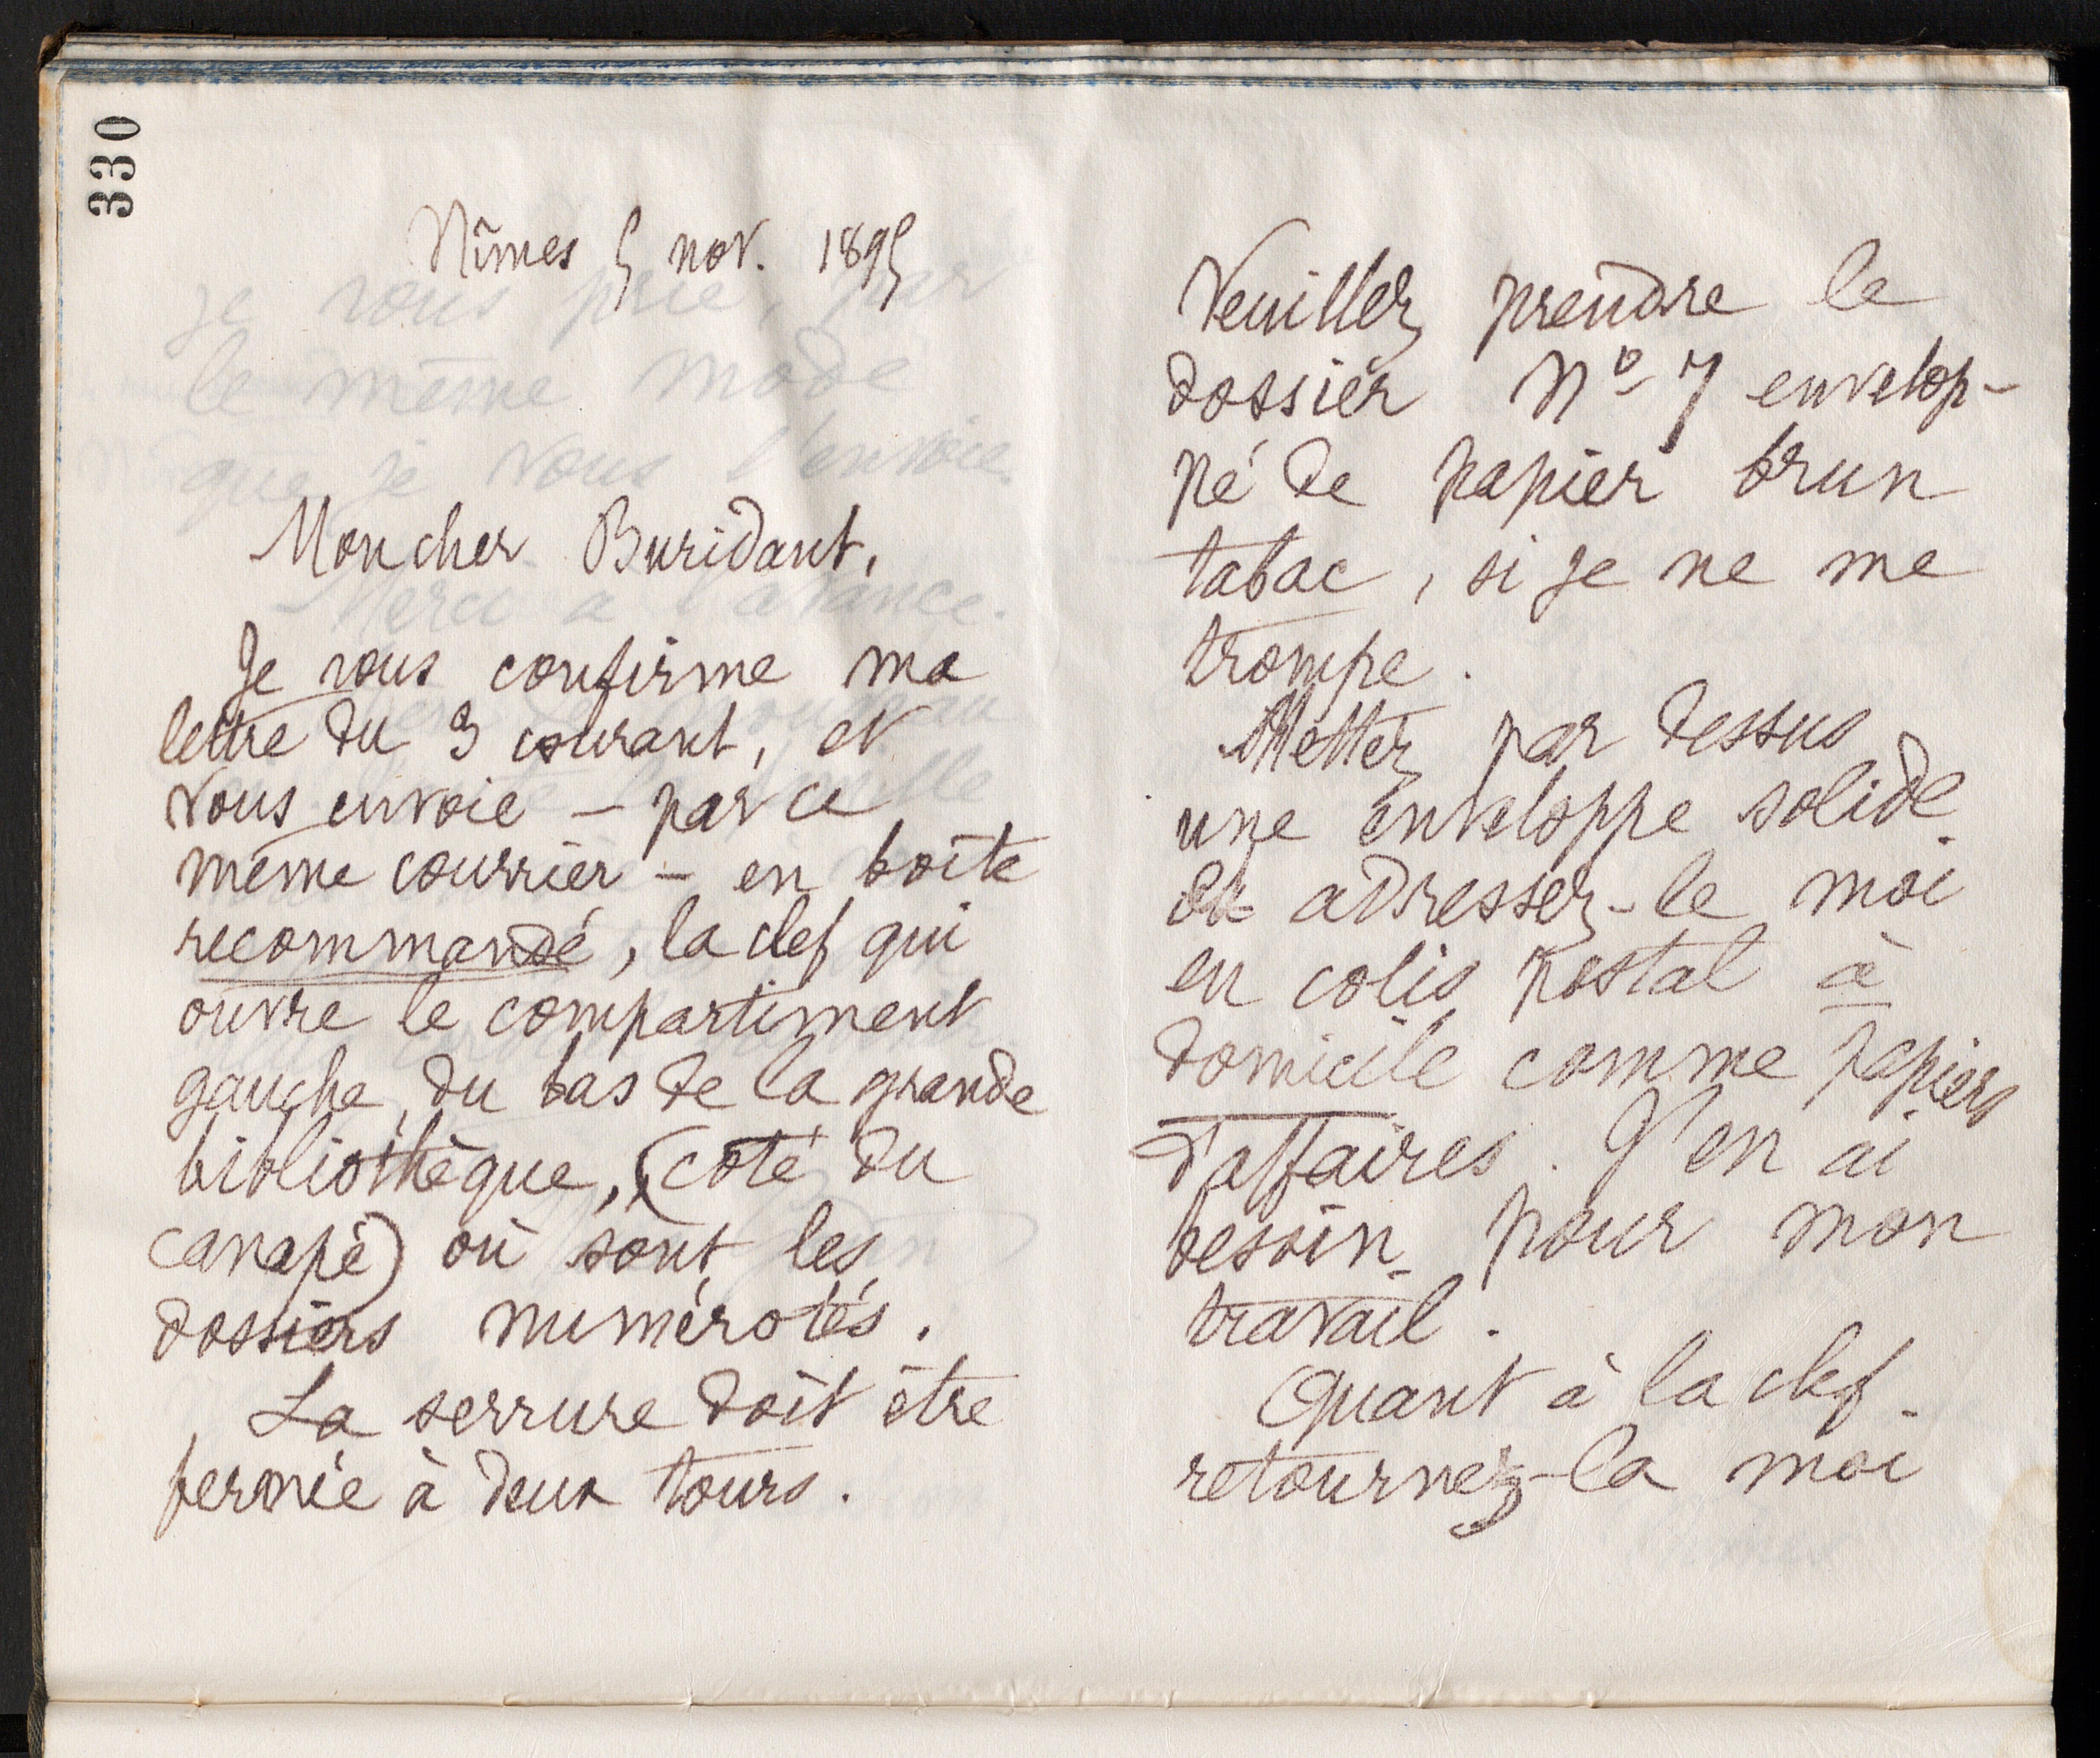 330
Nîmes 5 nov. 1895
Mon cher Buridant,
Je vous confirme ma
lettre du 3 courant, et
vous envoie – par ce
même courrier – en boîte
recommandé, la clef qui
ouvre le compartiment
gauche, du bas de la grande
bibliothèque, (côté du
canapé) où sont les
dossiers numérotés.
La serrure doit être
fermée à deux tours.
Veuillez prendre le
dossier No 7 envelop-
pé de papier brun
tabac, si je ne me
trompe.
Mettez par dessus
une enveloppe solide
et adressez-le moi
en colis postal à
domicile comme papiers
d'affaires. J'en ai
besoin pour mon
travail.
Quant à la clef
retournez-la moi
je vous prie, par
le même mode
que je vous l'envoie.
Merci à l'avance.